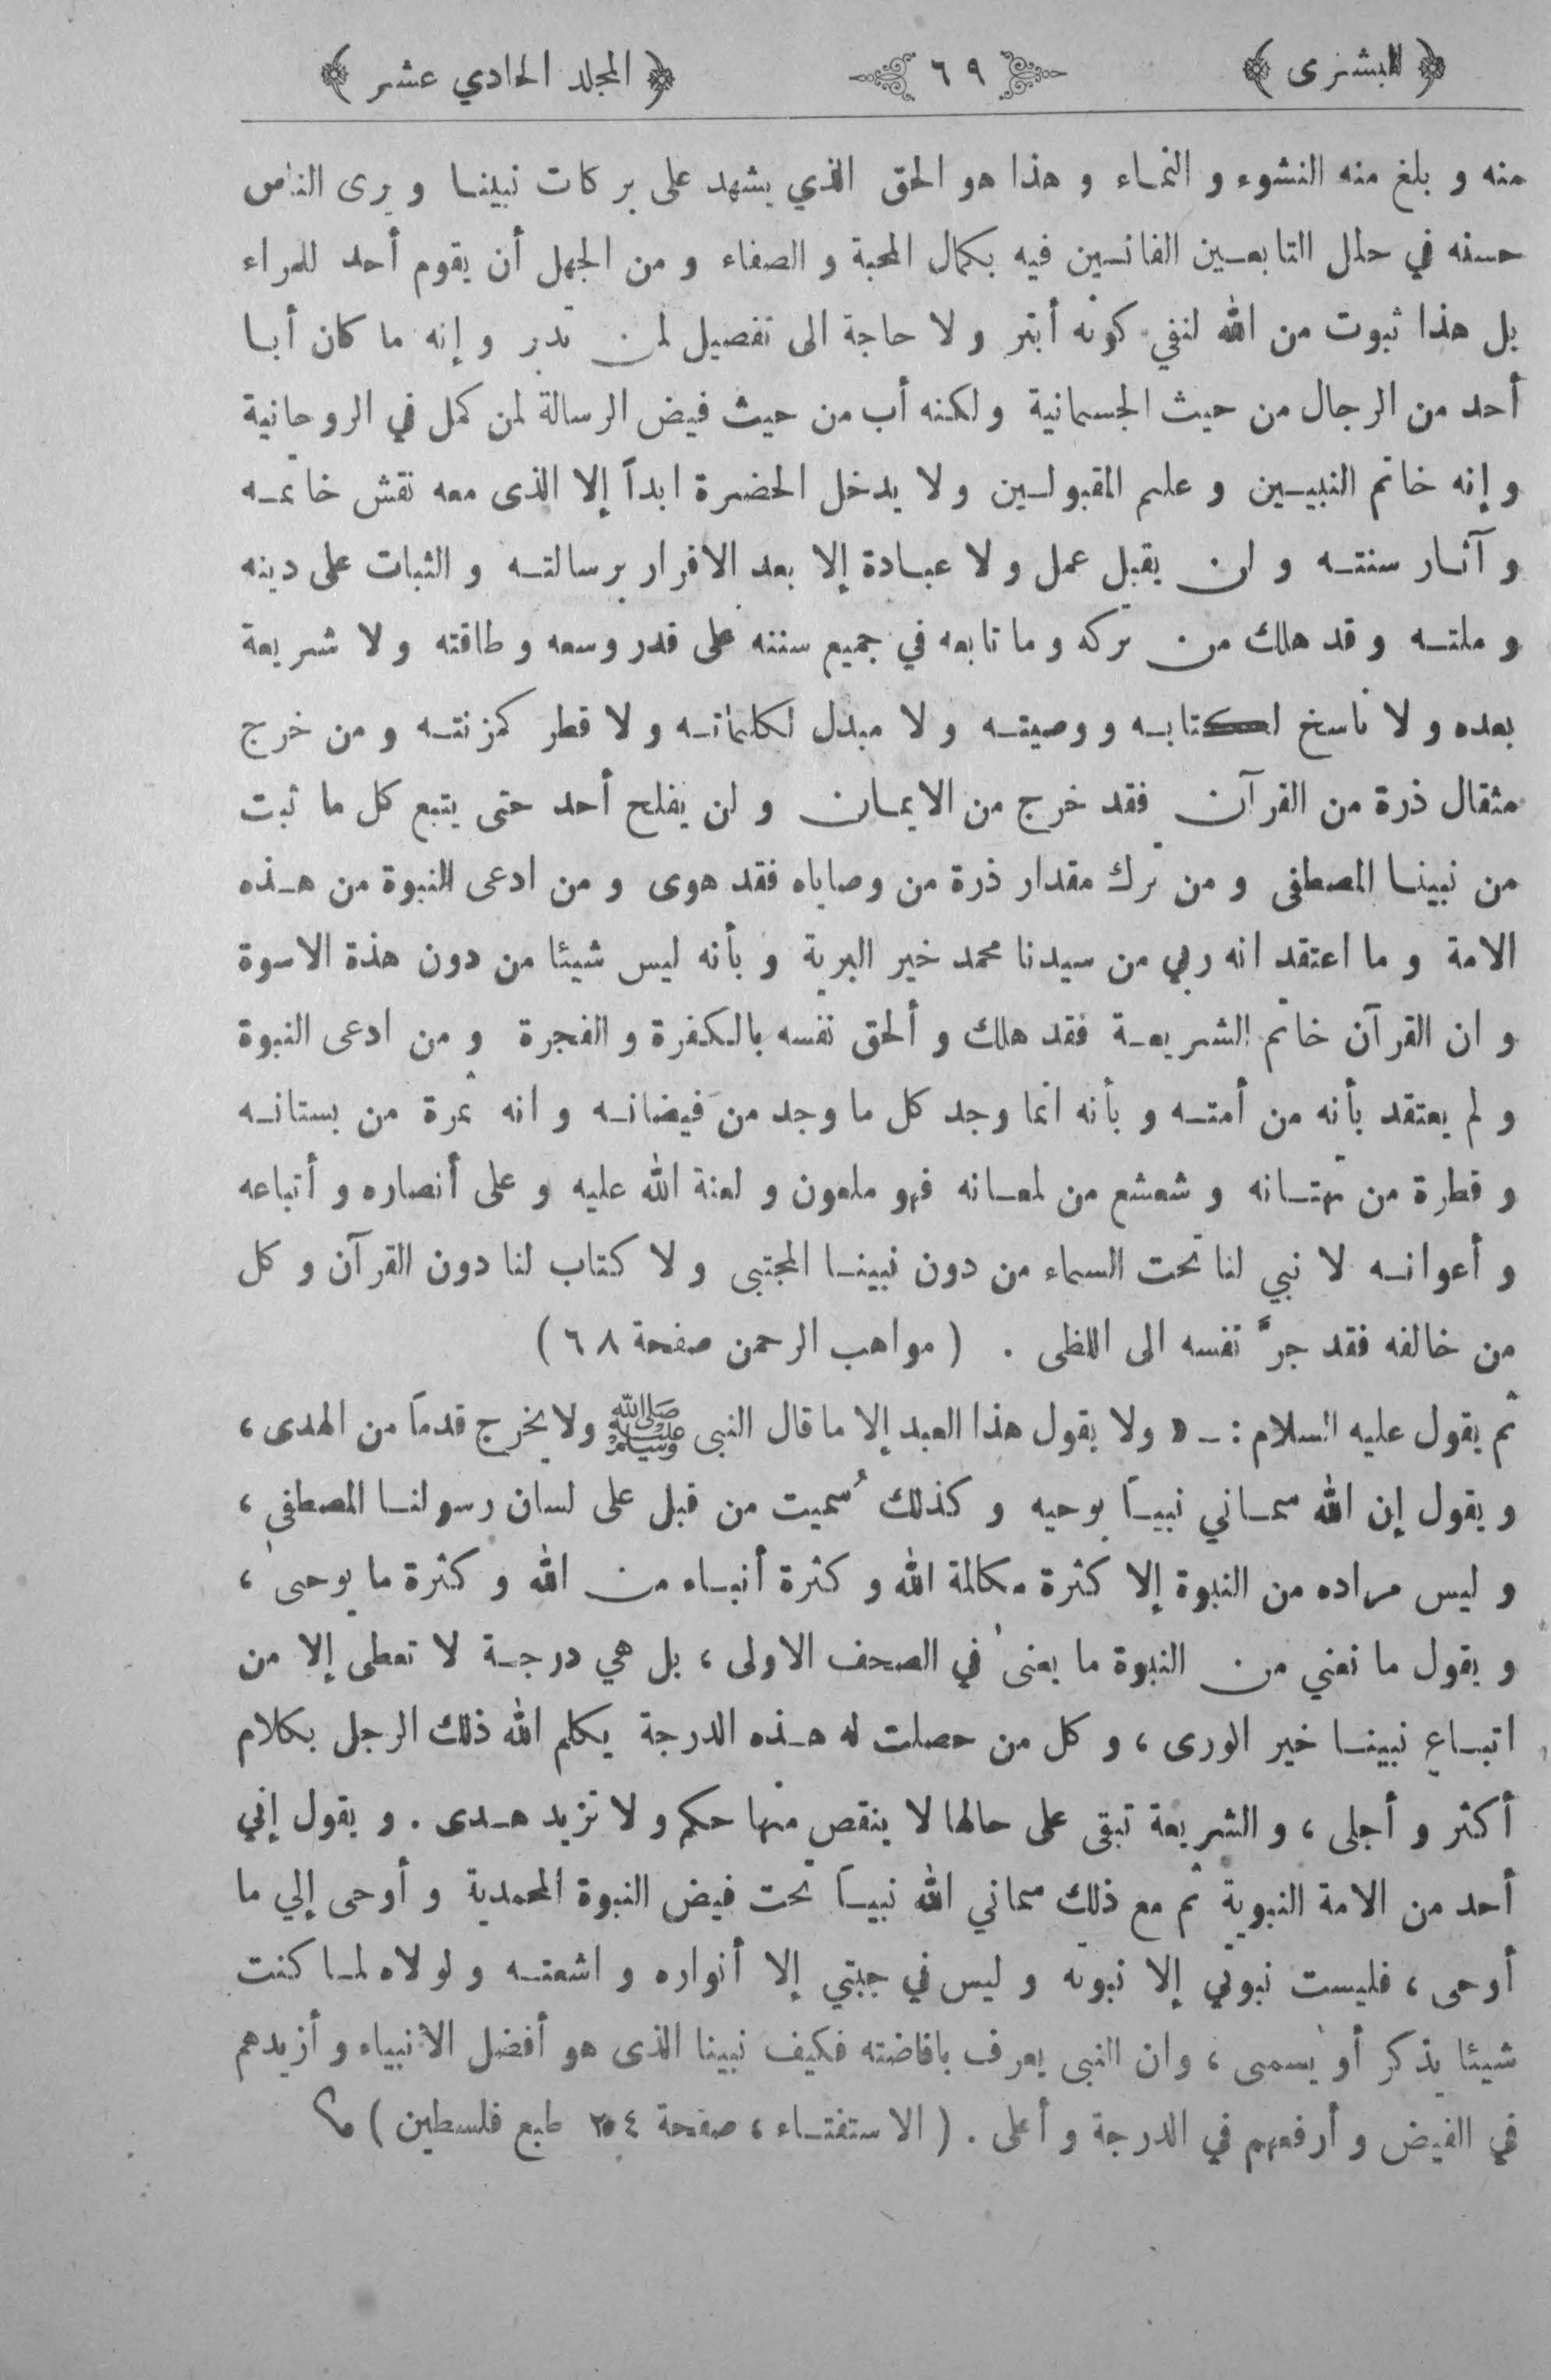 ﴿ البشرى ﴾ ٦٩ ﴿ المجلد الحادي عشر ﴾
منه و بلغ منه النشوء و النماء و هذا هو الحق الذي يشهد على بركات نبينا و يرى الناس
حسنه في حلل التابعين الفانين فيه بكمال المحبة و الصفاء و من الجهل أن يقوم أحد للمراء
بل هذا ثبوت من الله لنفي كونه أبتر و لا حاجة الى تفصيل لمن تدبر و إنه ما كان أبا
أحد من الرجال من حيث الجسمانية و لكنه أب من حيث فيض الرسالة لمن كمل في الروحانية
و إنه خاتم النبيين و علم المقبولين و لا يدخل الحضرة ابداً إلا الذى معه نقش خاتمه
و آثار سنته و لن يقبل عمل و لا عبادة إلا بعد الاقرار برسالته و الثبات على دينه
و ملته و قد هلك من تركه و ما تابعه في جميع سننه على قدر وسعه و طاقته و لا شريعة
بعده و لا ناسخ لكتابه و وصيته و لا مبدل لكلماته و لا قطر كمزنته و من خرج
مثقال ذرة من القرآن فقد خرج من الايمان و لن يفلح أحد حتى يتبع كل ما ثبت
من نبينا المصطفى و من ترك مقدار ذرة من وصاياه فقد هوى و من ادعى النبوة من هذه
الامة و ما اعتقد انه ربي من سيدنا محمد خير البرية و بأنه ليس شيئا من دون هذة الاسوة
و ان القرآن خاتم الشريعة فقد هلك و ألحق نفسه بالكفرة و الفجرة و من ادعى النبوة
و لم يعتقد بأنه من أمته و بأنه انما وجد كل ما وجد من فيضانه و انه ثمرة من بستانه
و قطرة من تهتانه و شعشع من لمعانه فهو ملعون و لعنة الله عليه و على أنصاره و أتباعه
و أعوانه لا نبي لنا تحت السماء من دون نبينا المجتبى و لا كتاب لنا دون القرآن و كل
من خالفه فقد جرَّ نفسه الى اللظى . ( مواهب الرحمن صفحة ٦٨ )
ثم يقول عليه السلام : ـ « ولا يقول هذا العبد إلا ما قال النبى ﷺ ولا يخرج قدماً من الهدى ،
و يقول إن الله سماني نبياً بوحيه و كذلك سُميت من قبل على لسان رسولنا المصطفى ،
و ليس مراده من النبوة إلا كثرة مكالمة الله و كثرة أنباء من الله و كثرة ما يوحى ،
و يقول ما نعني من النبوة ما يعنى في الصحف الاولى ، بل هي درجة لا تعطى إلا من
اتباع نبينا خير الورى ، و كل من حصلت له هذه الدرجة يكلم الله ذلك الرجل بكلام
أكثر و أجلى ، و الشريعة تبقى على حالها لا ينقص منها حكم و لا تزيد هدى . و يقول إني
أحد من الامة النبوية ثم مع ذلك سماني الله نبياً تحت فيض النبوة المحمدية و أوحى إلي ما
أوحى ، فليست نبوتي إلا نبوته و ليس في جبتي إلا أنواره و اشعته و لولاه لما كنت
شيئا يذكر أو يسمى ، وان النبى يعرف بافاضته فكيف نبينا الذى هو أفضل الأنبياء و أزيدهم
في الفيض و أرفعهم في الدرجة و أعلى . ( الاستفتاء ، صفحة ٢٥٤ طبع فلسطين )